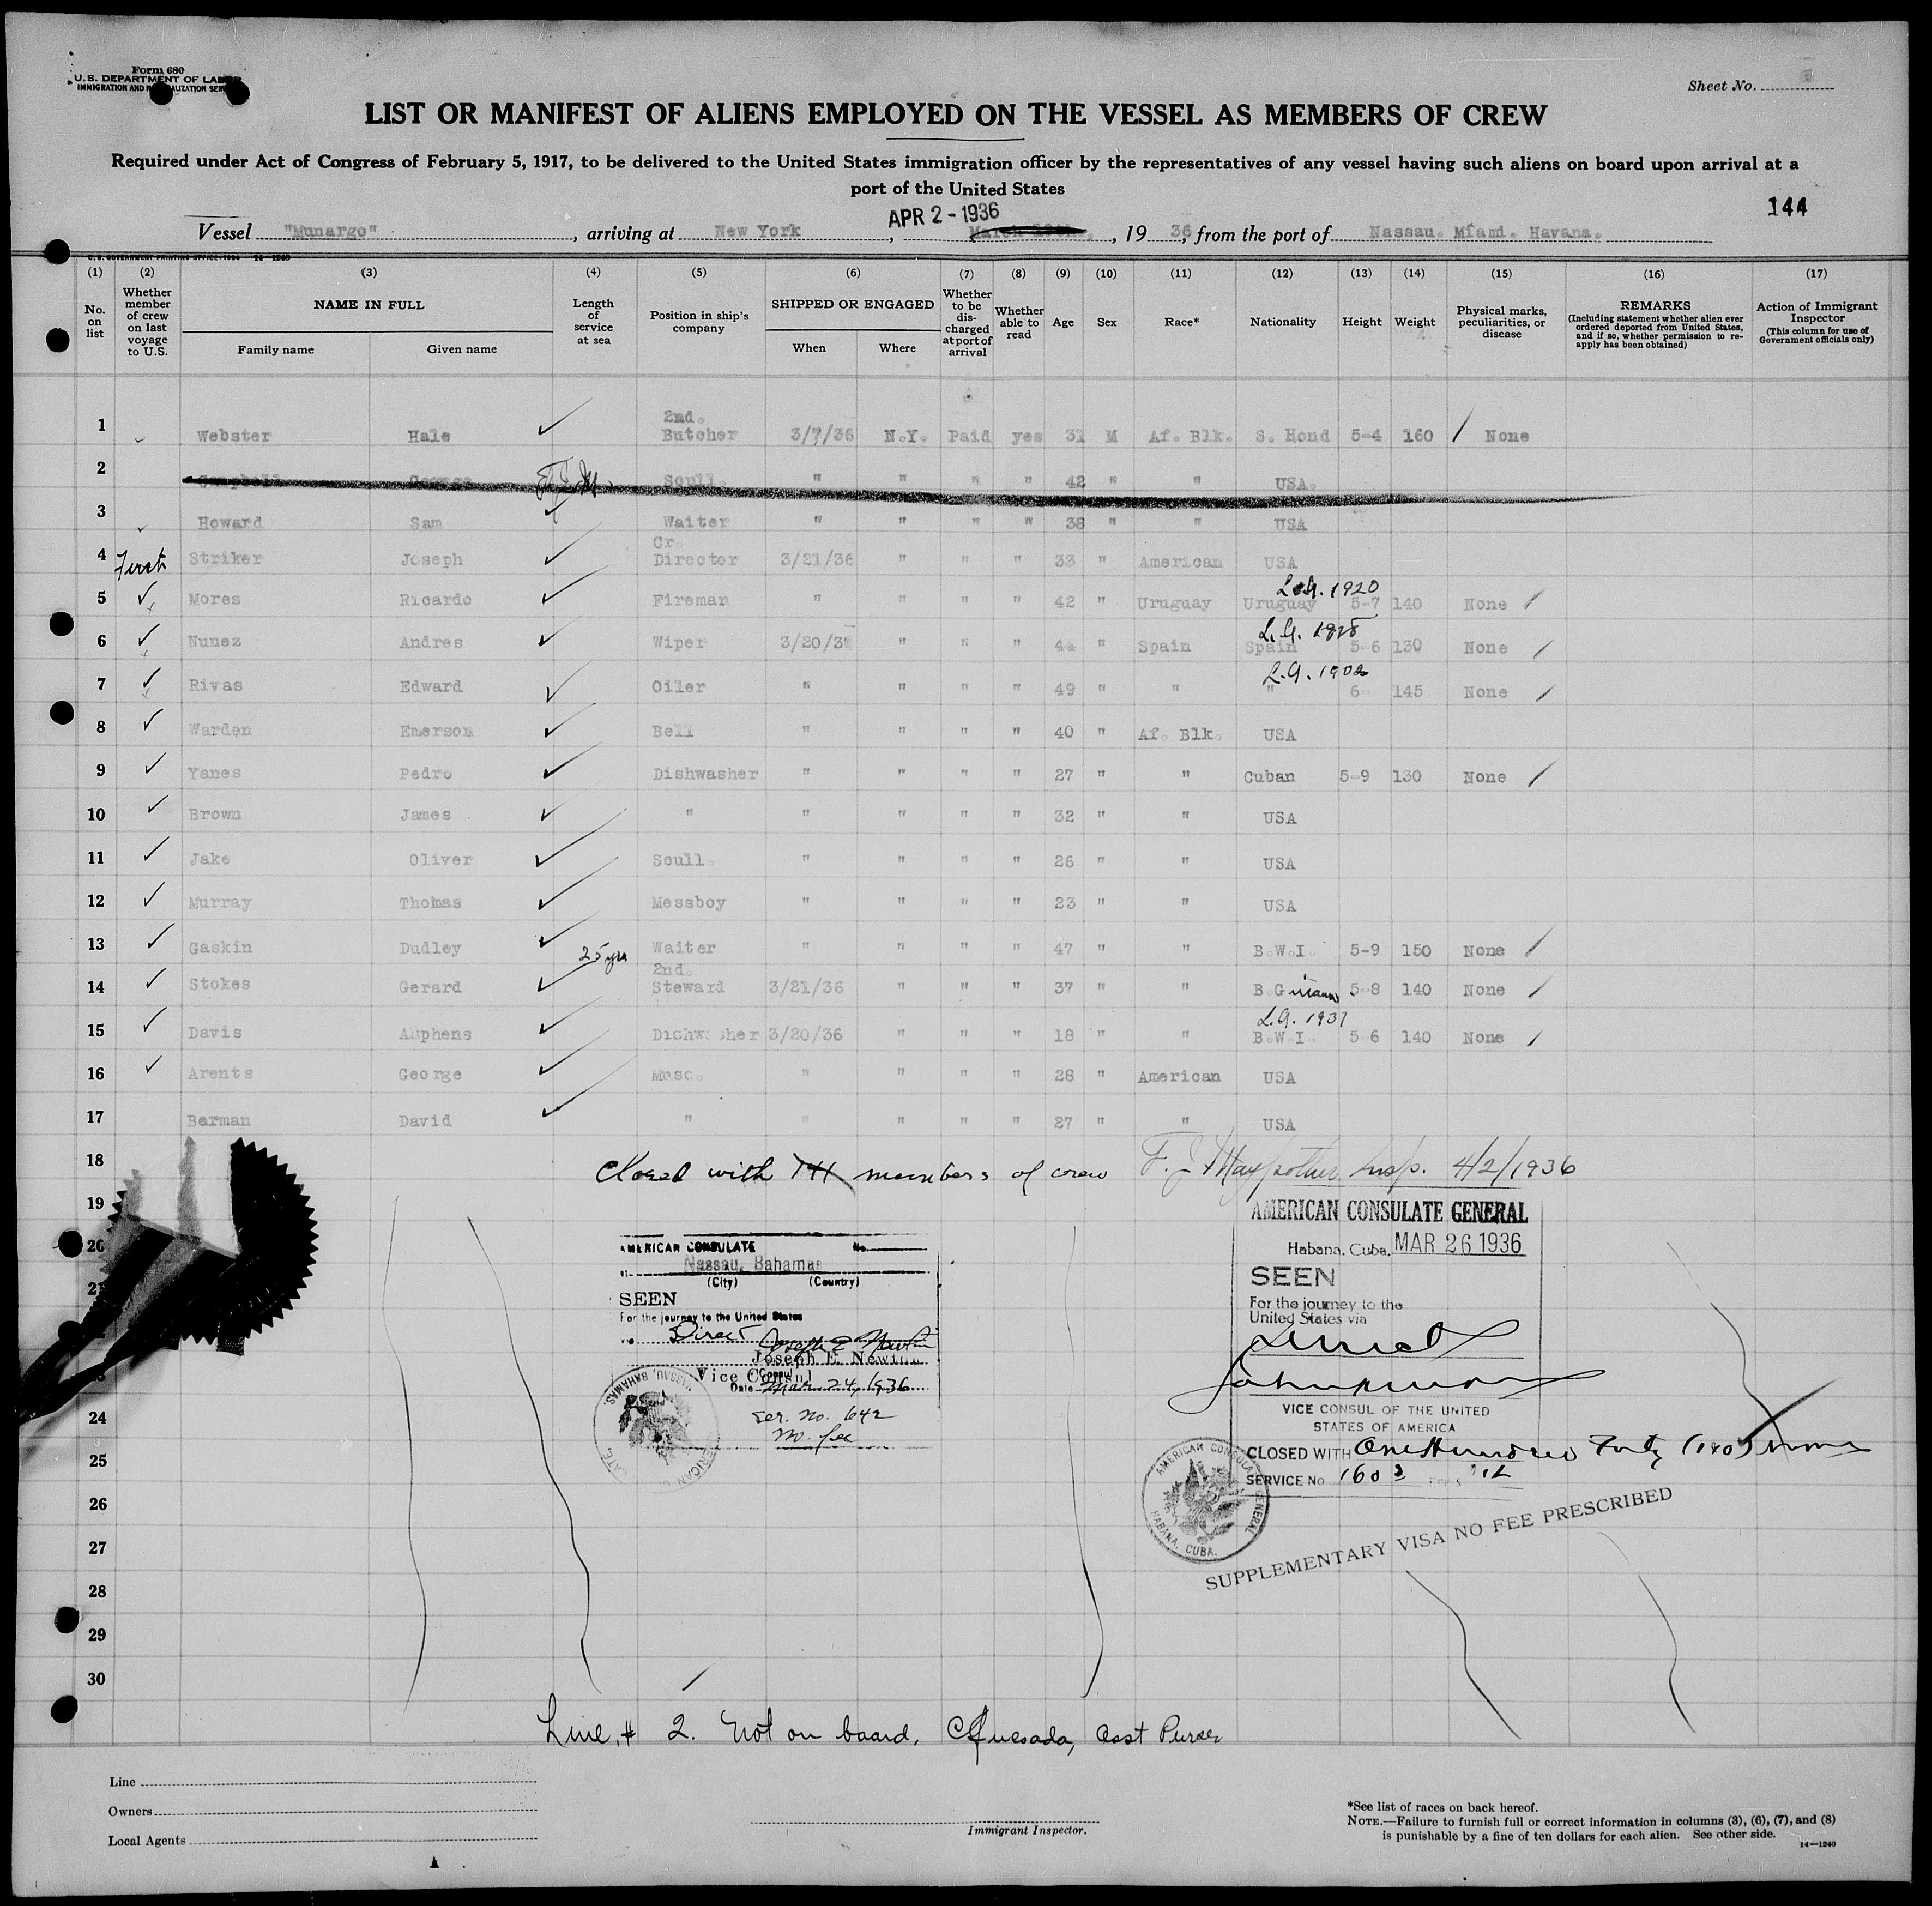 Form 680
U.S. DEPARTMENT OF LABOR
IMMIGRATION AND NATURALIZATION SERVICE
Sheet No.
LIST OR MANIFEST OF ALIENS EMPLOYED ON THE VESSEL AS MEMBERS OF CREW
Required under Act of Congress of February 5, 1917, to be delivered to the United States immigration officer by the representatives of any vessel having such aliens on board upon arrival at a
port of the United States
144
APR 2 - 1936
Vessel "Munargo", arriving at New York, March, 19 36, from the port of Nassau. Miami. Havana.
U.S. GOVERNMENT PRINTING OFFICE: 1934 14-1240
(1) (2) (3) (4) (5) (6) (7) (8) (9) (10) (11) (12) (13) (14) (15) (16) (17)
No. on list
Whether member of crew on last voyage to U.S.
NAME IN FULL
Family name Given name
Length of service at sea
Position in ship's company
SHIPPED OR ENGAGED
When Where
Whether to be discharged at port of arrival
Whether able to read
Age Sex Race* Nationality Height Weight
Physical marks, peculiarities, or disease
REMARKS
(Including statement whether alien ever ordered deported from United States, and if so, whether permission to re-apply has been obtained)
Action of Immigrant Inspector
(This column for use of Government officials only)
1 Webster Hale 2nd. Butcher 3/7/36 N.Y. Paid yes 31 M Af. Blk. S. Hond 5-4 160 None
2 Campbell George Scull. " " " " 42 " " USA.
3 Howard Sam Waiter " " " " 38 " " USA
4 First Striker Joseph Cr. Director 3/21/36 " " " 33 " American USA
L.A. 1920
5 Mores Ricardo Fireman " " " " 42 " Uruguay Uruguay 5-7 140 None
L.A.
6 Nunez Andres Wiper 3/20/36 " " " 44 " Spain Spain 5-6 130 None
L.A. 1902
7 Rivas Edward Oiler " " " " 49 " " " 6 145 None
8 Warden Emerson Bell " " " " 40 " Af. Blk. USA
9 Yanes Pedro Dishwasher " " " " 27 " " Cuban 5-9 130 None
10 Brown James " " " " " 32 " " USA
11 Jake Oliver Scull. " " " " 26 " " USA
12 Murray Thomas Messboy " " " " 23 " " USA
13 Gaskin Dudley 25 yrs Waiter " " " " 47 " " B.W.I. 5-9 150 None
14 Stokes Gerard 2nd. Steward 3/21/36 " " " 37 " " B G 5-8 140 None
L.A. 1931
15 Davis Alphens Dishwasher 3/20/36 " " " 18 " " B.W.I. 5 6 140 None
16 Arents George Musc. " " " " 28 " American USA
17 Berman David " " " " " 27 " " USA
18
Closed with 141 members of crew F. J. Insp. 4/2/1936
19
20
21
24
25
26
27
28
29
30
AMERICAN CONSULATE No.
at Nassau, Bahamas
(City) (Country)
SEEN
For the journey to the United States
via Direct
Joseph E. Newton
Vice Consul
Date Mar. 24, 1936
Ser. No. 642
No fee
AMERICAN CONSULATE NASSAU, BAHAMAS
AMERICAN CONSULATE GENERAL
Habana, Cuba, MAR 26 1936
SEEN
For the journey to the
United States via
Direct
VICE CONSUL OF THE UNITED
STATES OF AMERICA
CLOSED WITH One Hundred Forty (140) names
SERVICE No. 1602
AMERICAN CONSULATE GENERAL HABANA, CUBA.
SUPPLEMENTARY VISA NO FEE PRESCRIBED
Line # 2. Not on board, Quesada, Asst Purser
Line
Owners
Local Agents
Immigrant Inspector.
*See list of races on back hereof.
NOTE.—Failure to furnish full or correct information in columns (3), (6), (7), and (8)
is punishable by a fine of ten dollars for each alien. See other side.
14—1240